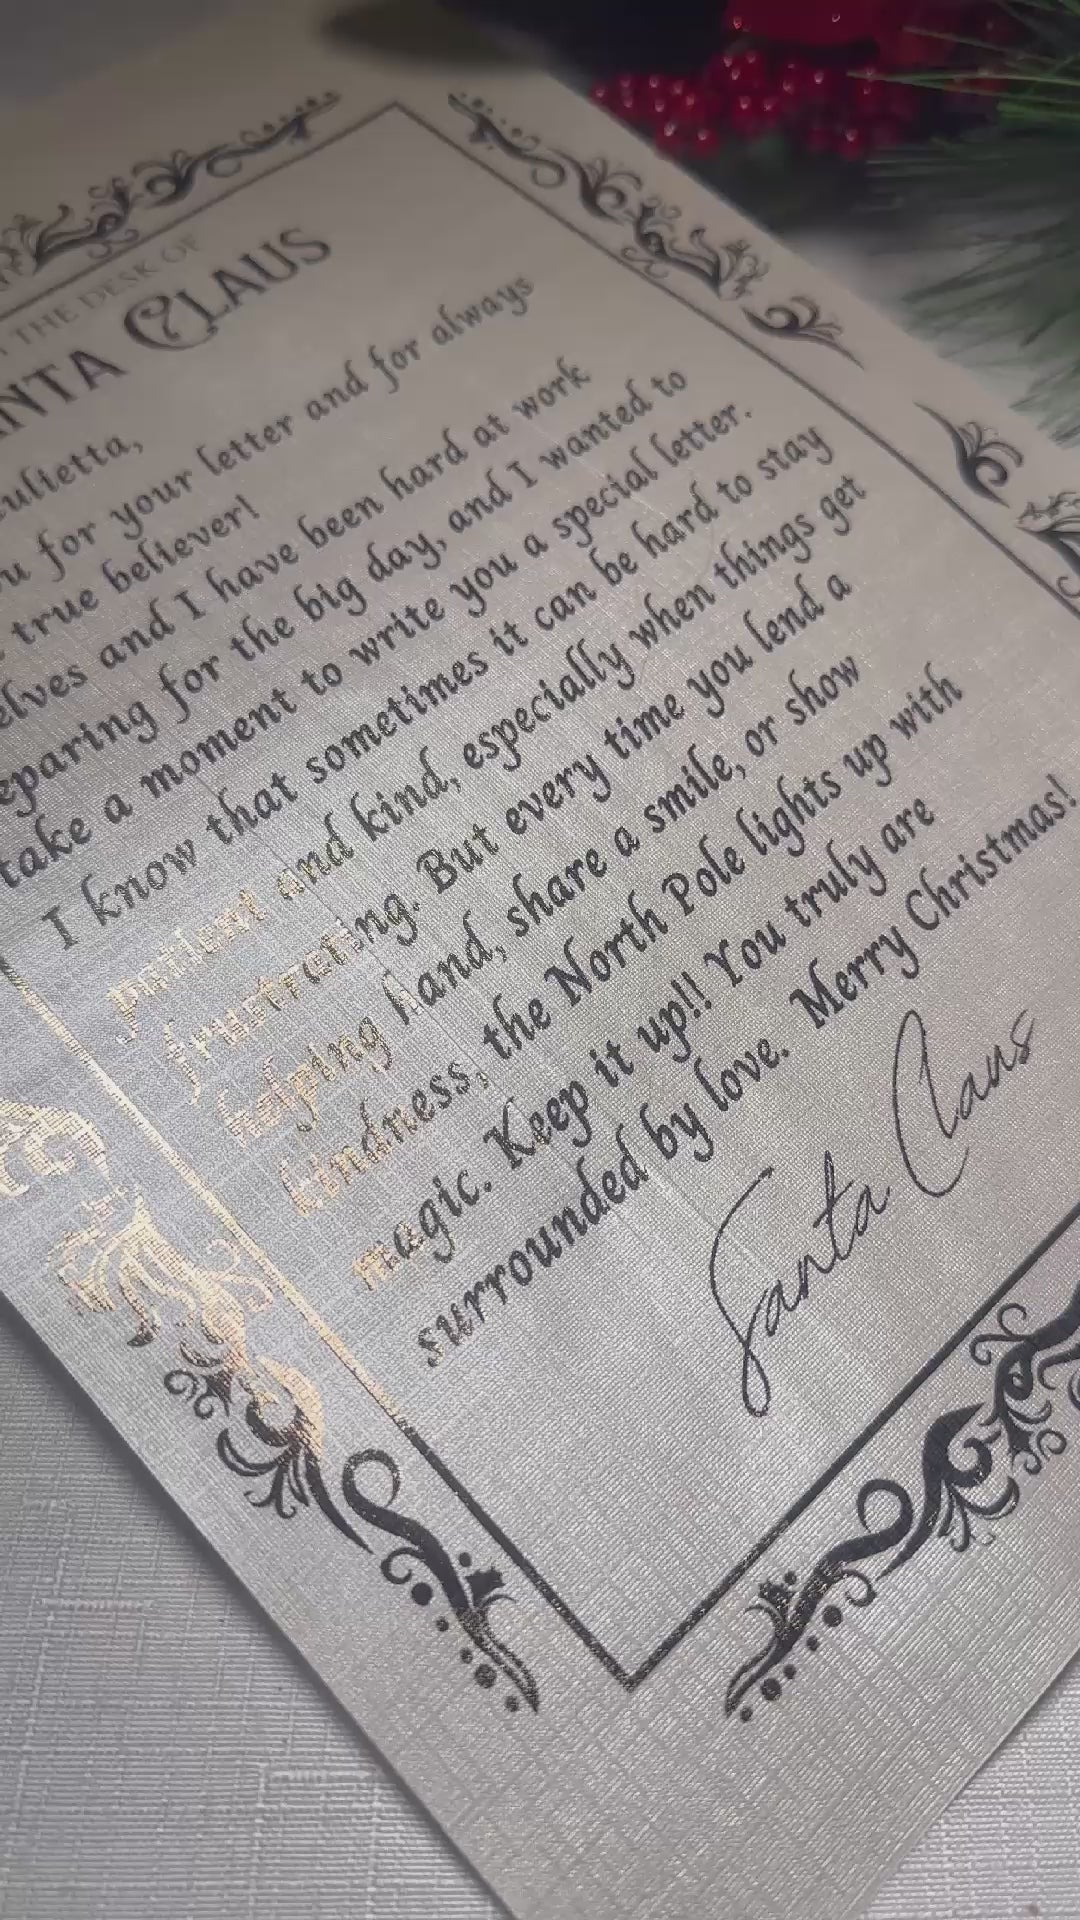 THE DESK OF
CLAUS
for your letter and for always
true believer!
elves and I have been hard at work
for the big day, and I wanted to
take a moment to write you a special letter.
I know that sometimes it can be hard to stay
patient and kind, especially when things get
frustrating. But every time you lend a
helping hand, share a smile, or show
kindness, the North Pole lights up with
magic. Keep it up!! You truly are
surrounded by love. Merry Christmas!
Santa Claus